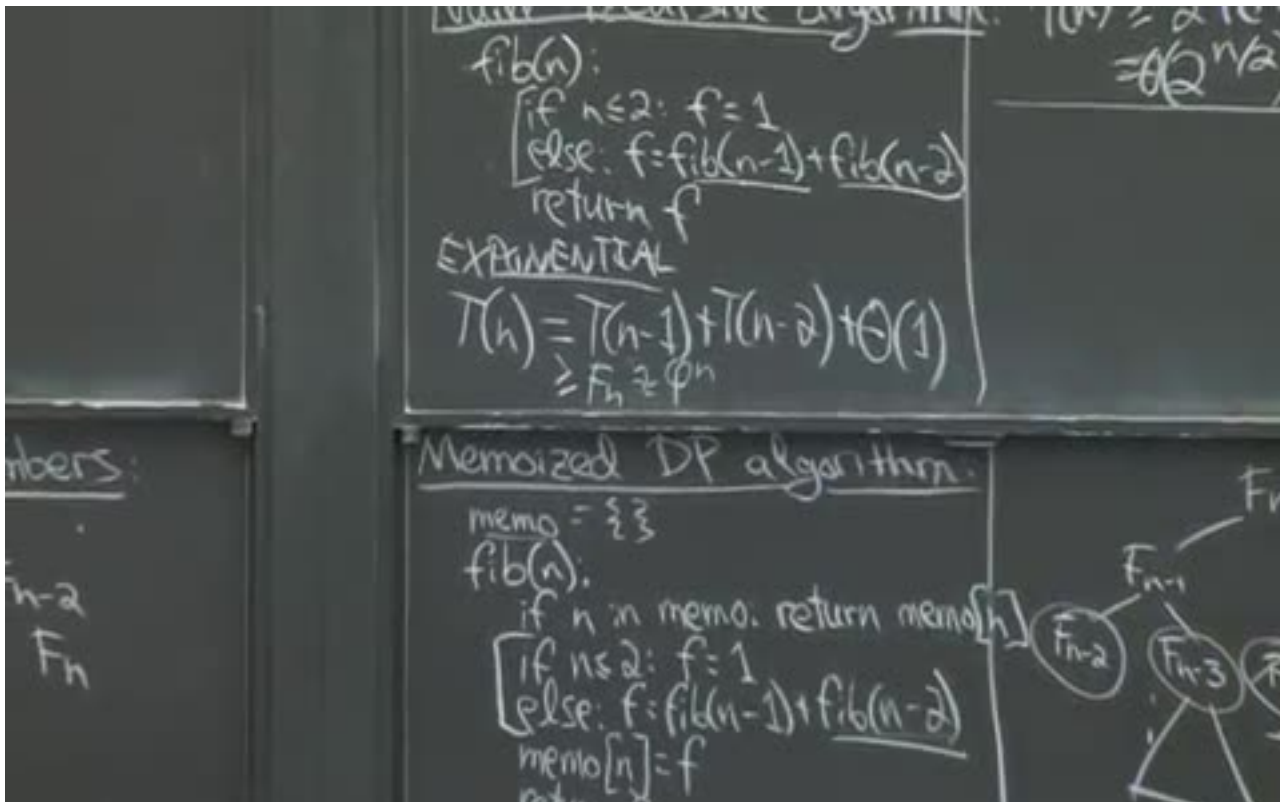 Naive recursive algorithm:
fib(n):
if n≤2: f=1
else: f=fib(n-1)+fib(n-2)
return f
EXPONENTIAL
T(n)=T(n-1)+T(n-2)+Θ(1)
≥ Fn ≈ φⁿ
=Θ(2^n/2)
mbers:
n-2
Fn
Memoized DP algorithm:
memo = {}
fib(n):
if n in memo: return memo[n]
if n≤2: f=1
else: f=fib(n-1)+fib(n-2)
memo[n]=f
Fn-1
Fn-2
Fn-3